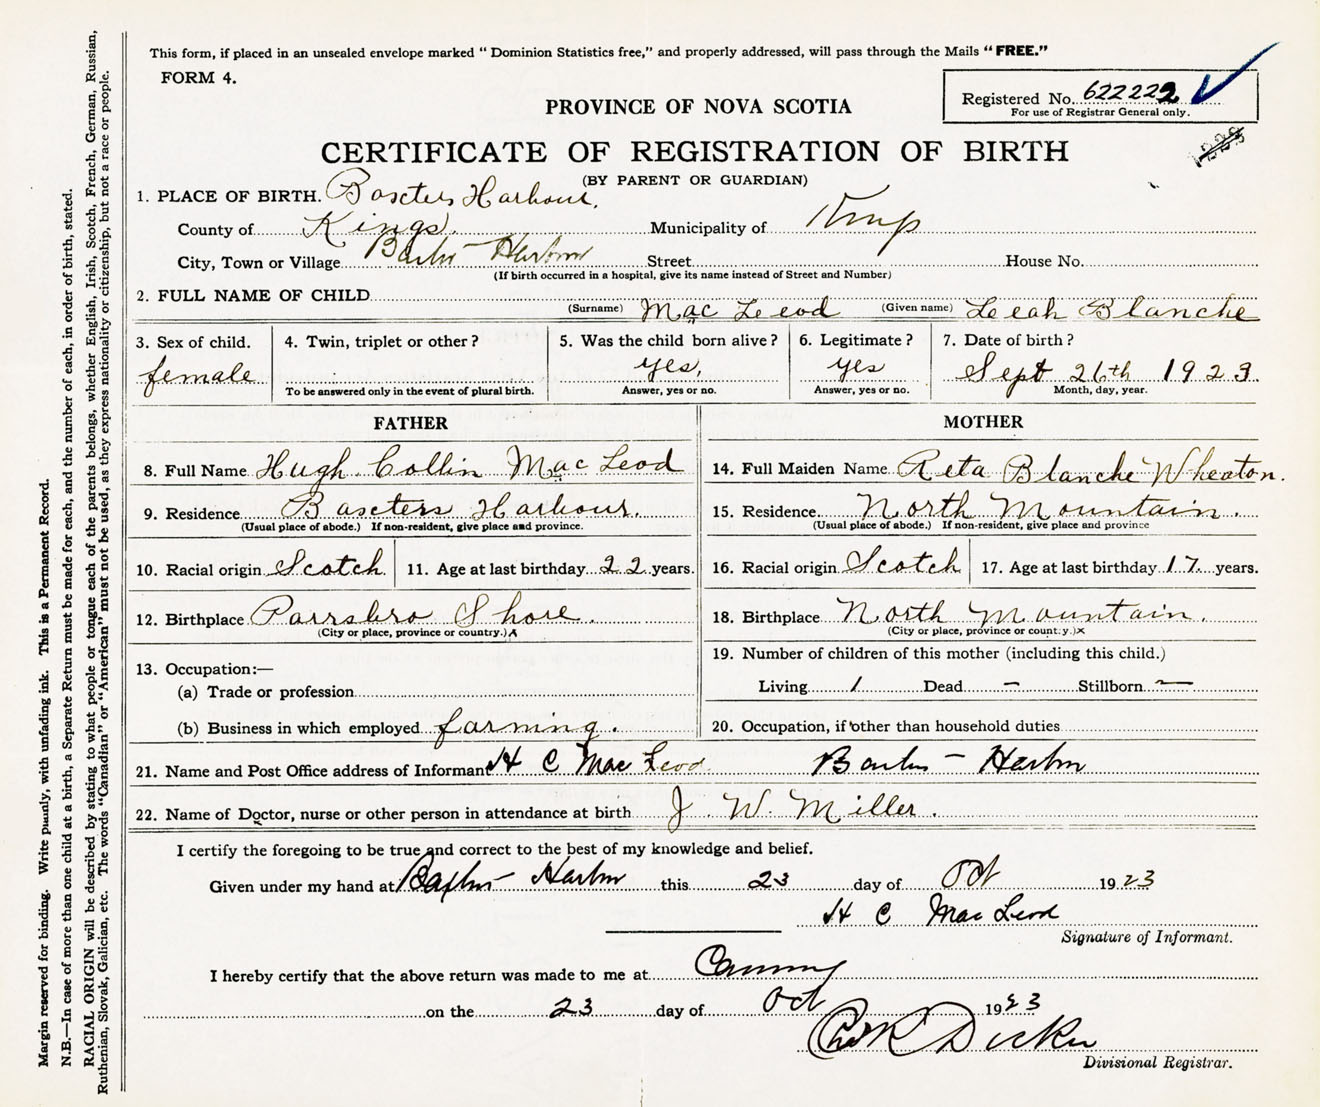 This form, if placed in an unsealed envelope marked "Dominion Statistics free," and properly addressed, will pass through the Mails "FREE."
FORM 4.
Registered No. 622222
For use of Registrar General only.
PROVINCE OF NOVA SCOTIA
CERTIFICATE OF REGISTRATION OF BIRTH
(BY PARENT OR GUARDIAN)
1. PLACE OF BIRTH. Baxters Harbour.
County of Kings. Municipality of Kings
City, Town or Village Harbour Street House No.
(If birth occurred in a hospital, give its name instead of Street and Number)
2. FULL NAME OF CHILD
(Surname) Mac Leod (Given name) Leah Blanche
3. Sex of child. 4. Twin, triplet or other? 5. Was the child born alive? 6. Legitimate? 7. Date of birth?
female yes, yes Sept 26th 1923
To be answered only in the event of plural birth. Answer, yes or no. Answer, yes or no. Month, day, year.
FATHER
8. Full Name Hugh Collin Mac Leod
9. Residence Baxters Harbour.
(Usual place of abode.) If non-resident, give place and province.
10. Racial origin Scotch 11. Age at last birthday 22 years.
12. Birthplace Parrsbro Shore.
(City or place, province or country.)
13. Occupation:—
(a) Trade or profession
(b) Business in which employed farming.
MOTHER
14. Full Maiden Name Reta Blanche Wheaton.
15. Residence. North Mountain.
(Usual place of abode.) If non-resident, give place and province
16. Racial origin Scotch 17. Age at last birthday 17 years.
18. Birthplace North Mountain.
(City or place, province or country.)x
19. Number of children of this mother (including this child.)
Living 1 Dead — Stillborn —
20. Occupation, if other than household duties
21. Name and Post Office address of Informant H C Mac Leod Harbour
22. Name of Doctor, nurse or other person in attendance at birth J. W. Miller.
I certify the foregoing to be true and correct to the best of my knowledge and belief.
Given under my hand at Baxters Harbour this 23 day of Oct 1923
H C Mac Leod
Signature of Informant.
I hereby certify that the above return was made to me at Canning
on the 23 day of Oct 1923
Divisional Registrar.
Margin reserved for binding. Write plainly, with unfading ink. This is a Permanent Record.
N.B.—In case of more than one child at a birth, a Separate Return must be made for each, and the number of each, in order of birth, stated.
RACIAL ORIGIN will be described by stating to what people or tongue each of the parents belongs, whether English, Irish, Scotch, French, German, Russian,
Ruthenian, Slovak, Galician, etc. The words "Canadian" or "American" must not be used, as they express nationality or citizenship, but not a race or people.